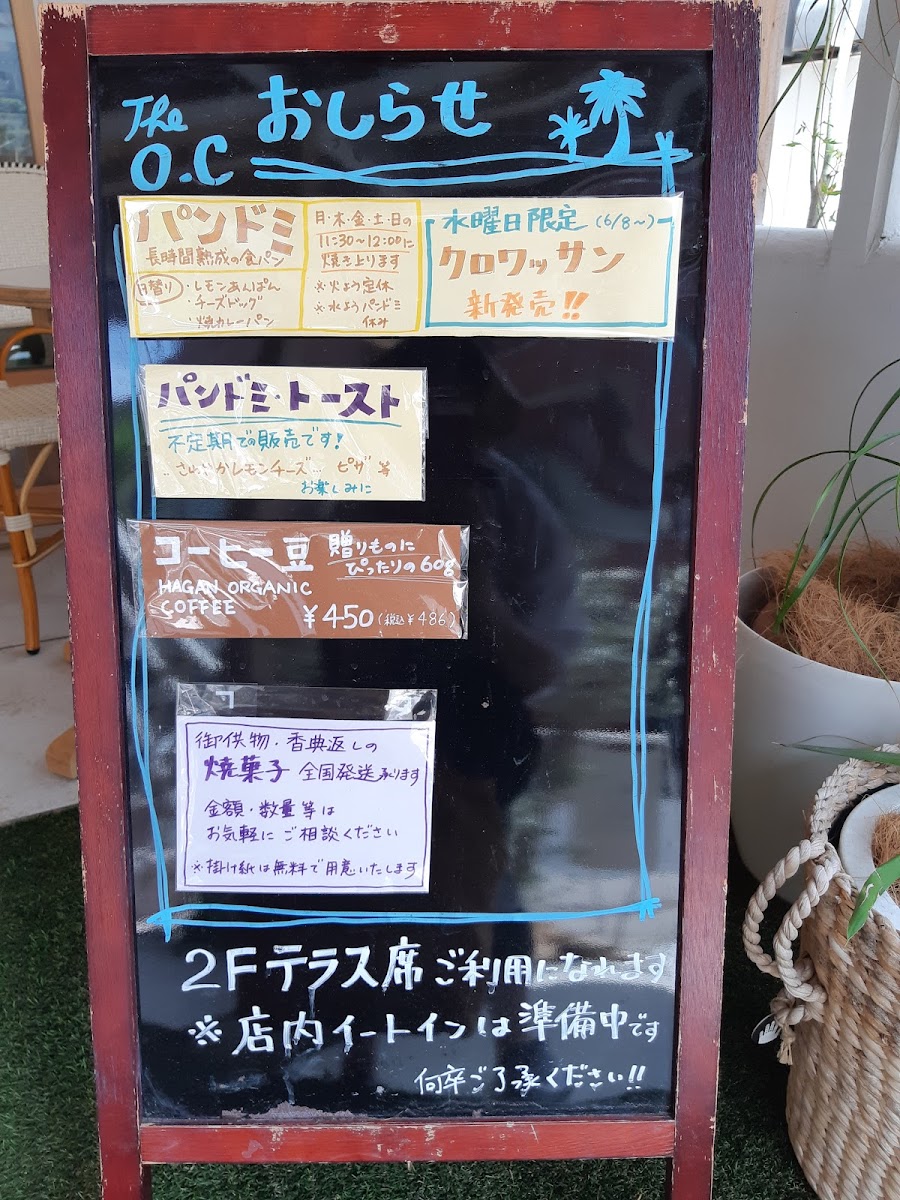 The
O.C
おしらせ
パンドミ
長時間熟成の食パン
日替り
・レモンあんぱん
・チーズドッグ
・焼カレーパン
月・木・金・土・日の
11:30〜12:00に
焼き上ります
※火よう定休
※水ようパンドミ
休み
水曜日限定(6/8〜)
クロワッサン
新発売!!
パンドミ・トースト
不定期での販売です!
レモンチーズ… ピザ等
お楽しみに
コーヒー豆
贈りものに
ぴったりの60g
HAGAN ORGANIC
COFFEE
¥450(税込¥486)
御供物・香典返しの
焼菓子 全国発送承ります
金額・数量等は
お気軽にご相談ください
※掛け紙は無料で用意いたします
2Fテラス席ご利用になれます
※店内イートインは準備中です
何卒ご了承ください!!